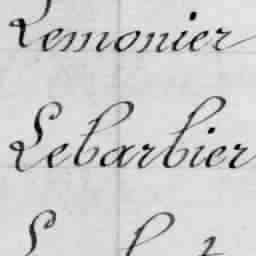 Lemonier
Lebarbier